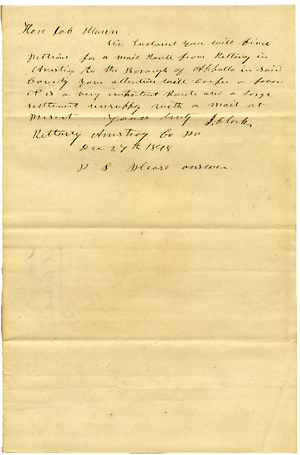 Hon Job Mann
Sir Enclosed you will find
Petition for a mail Route from Kittaning in
Armstrong to the Borough of Apollo in said
County your attention will confer a favor
it is a very important Route and a large
settlement unsupply with a mail at
present Yours truly J. Clark
Kittaning Armstrong Co Pa
Dec 27th 1848
P S Please answer